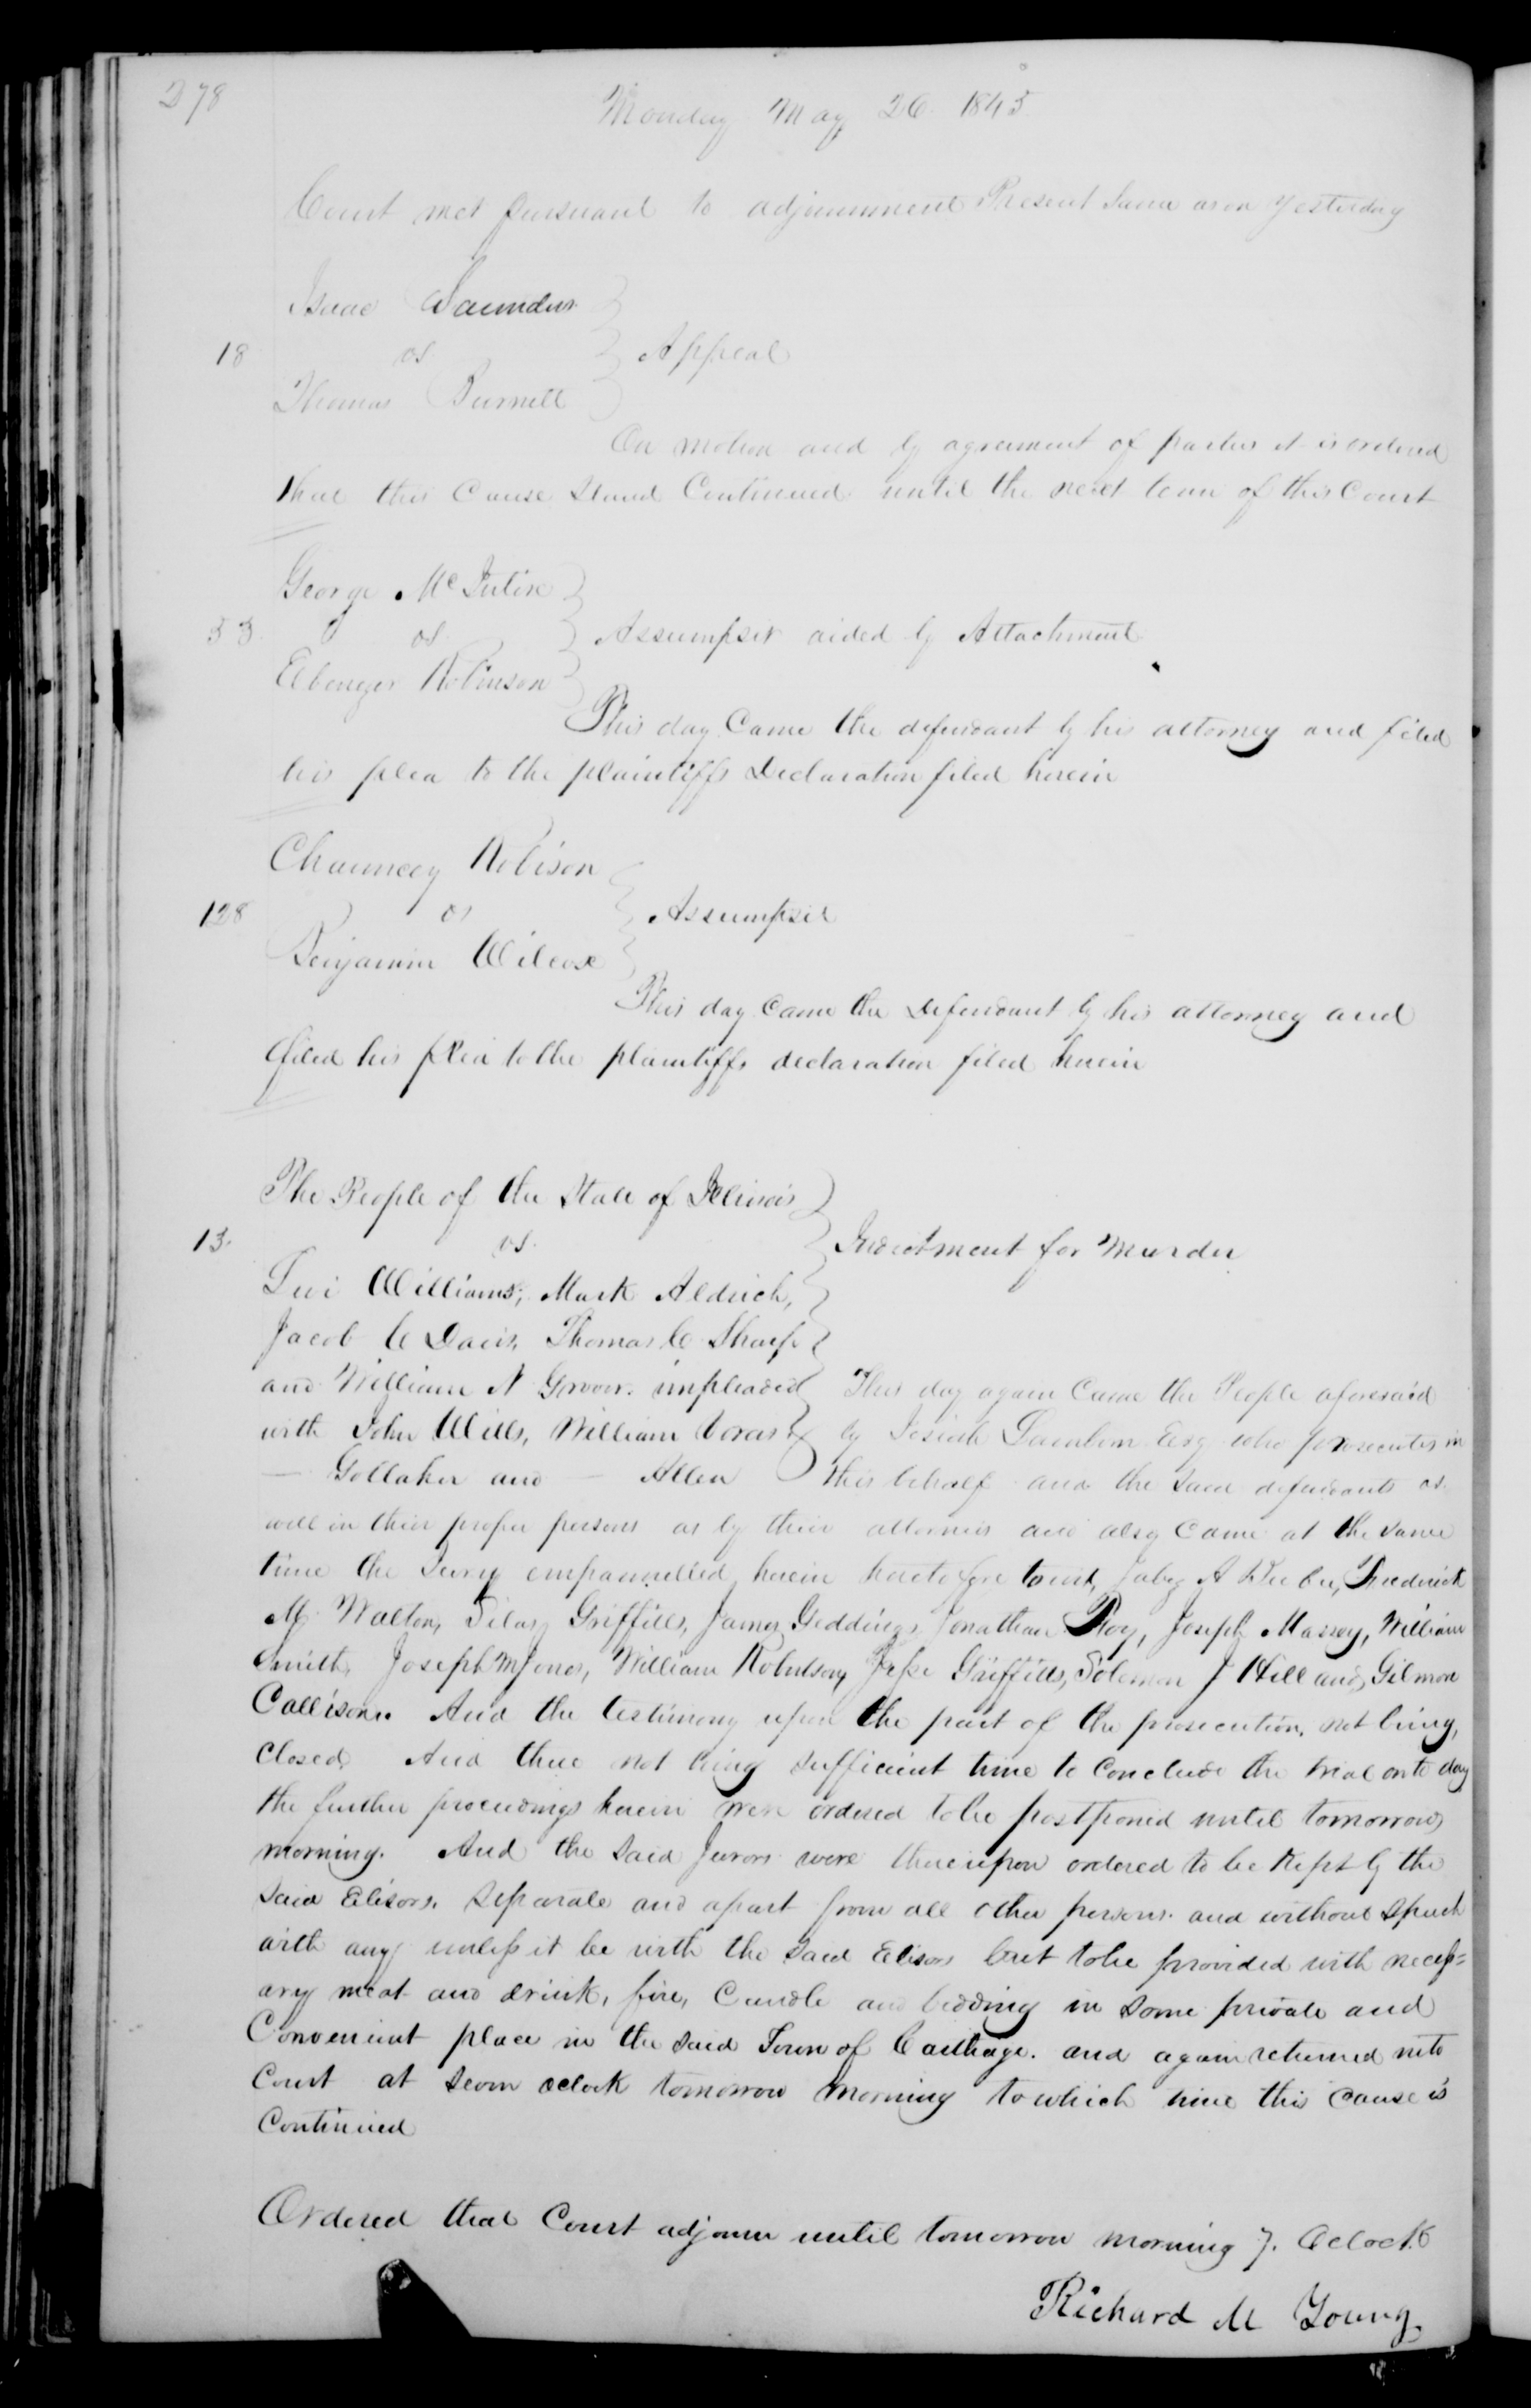 278
Monday May 26 1845
Court met pursuant to adjournment Present Same as on Yesterday
Isaac Saunders
18 vs Appeal
Thomas Burnell
On motion and by agreement of parties it is ordered
that this Cause Stand Continued until the next term of this Court
George McIntire
53 vs Assumpsit aided by Attachment
Ebenezer Robinson
This day Came the defendant by his attorney and filed
his plea to the plaintiffs Declaration filed herein
Chauncey Robison
128 vs Assumpsit
Benjamin Wilcox
This day Came the Defendant by his attorney and
filed his plea to the plaintiffs declaration filed herein
The People of the State of Illinois
13. vs. Indictment for Murder
Levi Williams, Mark Aldrich,
Jacob C Davis, Thomas C Sharp
and William N Grover. impleaded This day again Came the People aforesaid
with John Wills, William Voras by Josiah Lamborn Esq who prosecutes in
— Gollaher and — Allen this behalf and the said defendants as
well in their proper persons as by their attornies and also Came at the same
time the Jury empannelled herein heretofore towit, Jabez A Beebe, Frederick
M Walton, Silas Griffitts, James Geddings, Jonathan Foy, Joseph Massey, William
Smith, Joseph M Jones, William Robertson, Jesse Griffitts, Solomon J Hill and Gilmore
Callison. And the testimony upon the part of the prosecution, not being,
Closed, And there not being sufficient time to Conclude the trial on to day
the further proceedings herein were ordered to be postponed until tomorrow
morning. And the said Jurors were thereupon ordered to be kept by the
said Elisors. Separate and apart from all other persons. and without speech
with any unless it be with the said Elisors but to be provided with necess=
ary meat and drink, fire, Candle and bedding in some private and
Convenient place in the said Town of Carthage. and again returned into
Court at Seven oclock tomorrow morning to which time this cause is
Continued
Ordered that Court adjourn until tomorrow morning 7. Oclock
Richard M Young